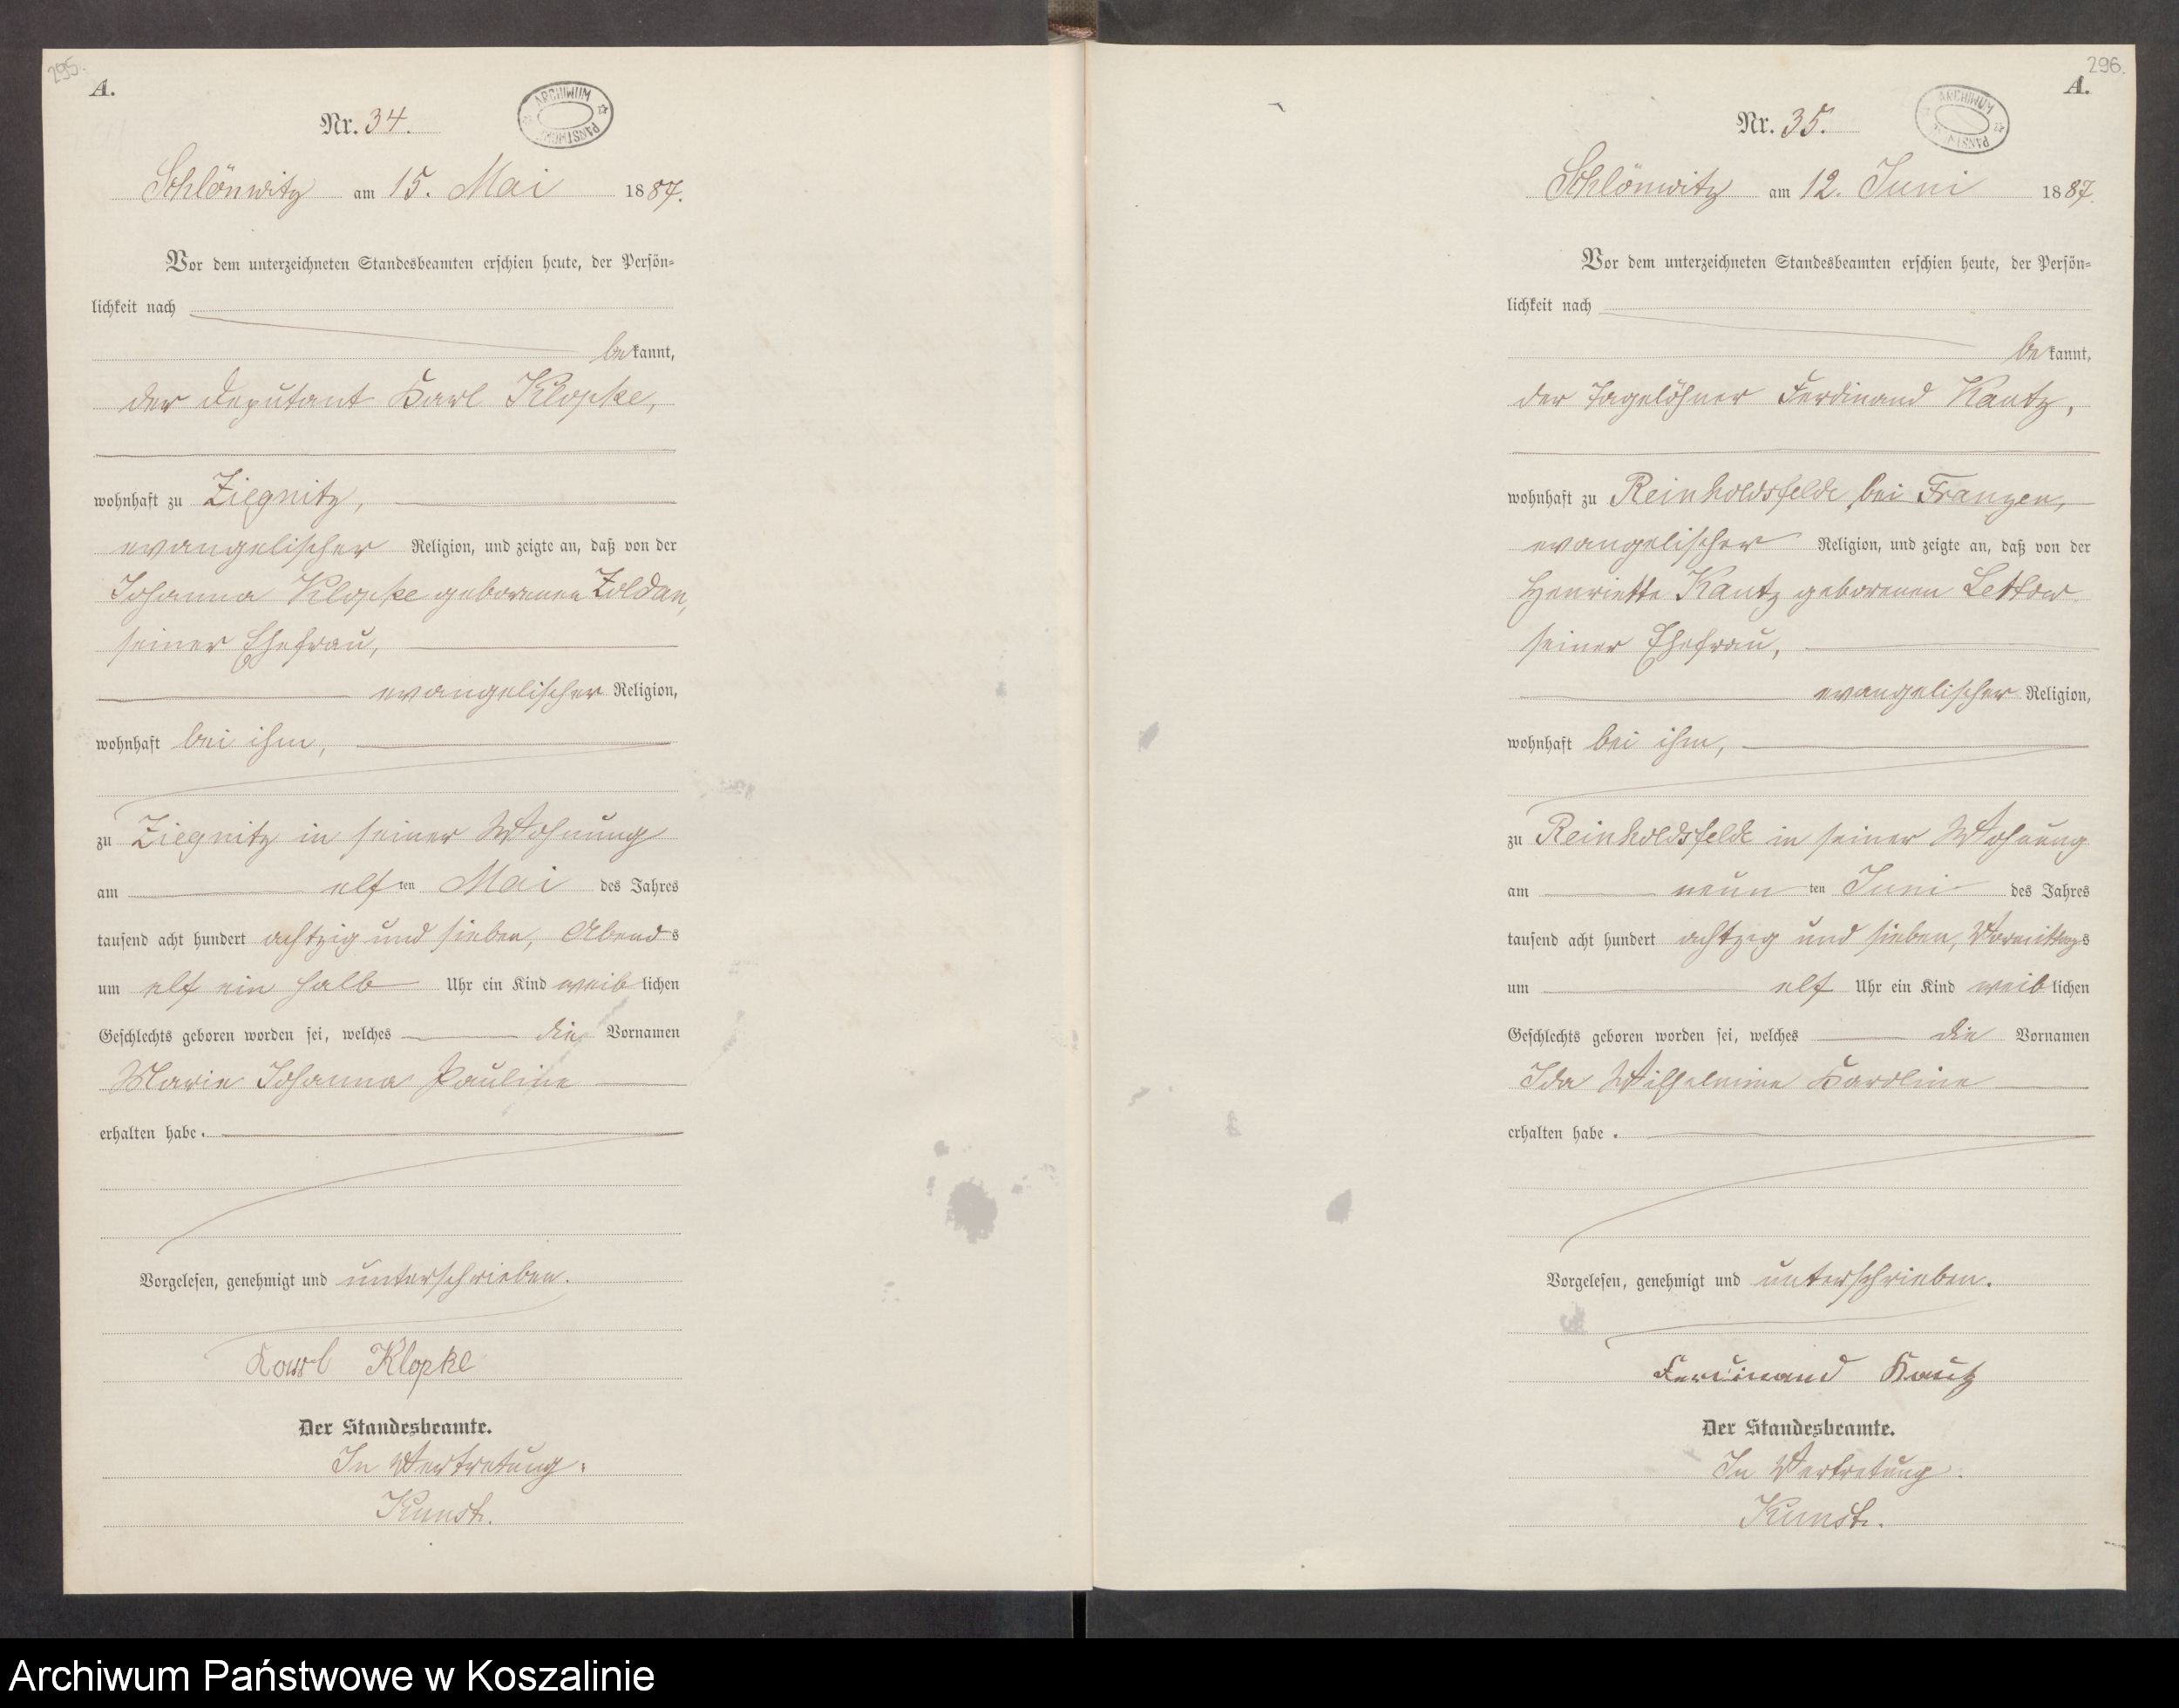 295.
A.
Nr. 34.
ARCHIWUM
Schlönwitz am 15. Mai 1887.
Vor dem unterzeichneten Standesbeamten erschien heute, der Persön-
lichkeit nach
bekannt,
der Deputant Karl Klopke,
wohnhaft zu Ziegnitz,
evangelischer Religion, und zeigte an, daß von der
Johanna Klopke geborenen Zoldan,
seiner Ehefrau,
evangelischer Religion,
wohnhaft bei ihm,
zu Ziegnitz in seiner Wohnung
am elften Mai des Jahres
tausend acht hundert achtzig und sieben, Abends
um elf ein halb Uhr ein Kind weiblichen
Geschlechts geboren worden sei, welches die Vornamen
Marie Johanna Pauline
erhalten habe.
Vorgelesen, genehmigt und unterschrieben.
Karl Klopke
Der Standesbeamte.
In Vertretung:
Kunst.
296.
A.
Nr. 35.
ARCHIWUM
Schlönwitz am 12. Juni 1887.
Vor dem unterzeichneten Standesbeamten erschien heute, der Persön-
lichkeit nach
bekannt,
der Tagelöhner Ferdinand Kautz,
wohnhaft zu Reinholdsfelde bei Franzen,
evangelischer Religion, und zeigte an, daß von der
Henriette Kautz geborenen Lettow
seiner Ehefrau,
evangelischer Religion,
wohnhaft bei ihm,
zu Reinholdsfelde in seiner Wohnung
am neunten Juni des Jahres
tausend acht hundert achtzig und sieben, Vormittags
um elf Uhr ein Kind weiblichen
Geschlechts geboren worden sei, welches die Vornamen
Ida Wilhelmine Karoline
erhalten habe.
Vorgelesen, genehmigt und unterschrieben.
Ferdinand Kautz
Der Standesbeamte.
In Vertretung.
Kunst.
Archiwum Państwowe w Koszalinie